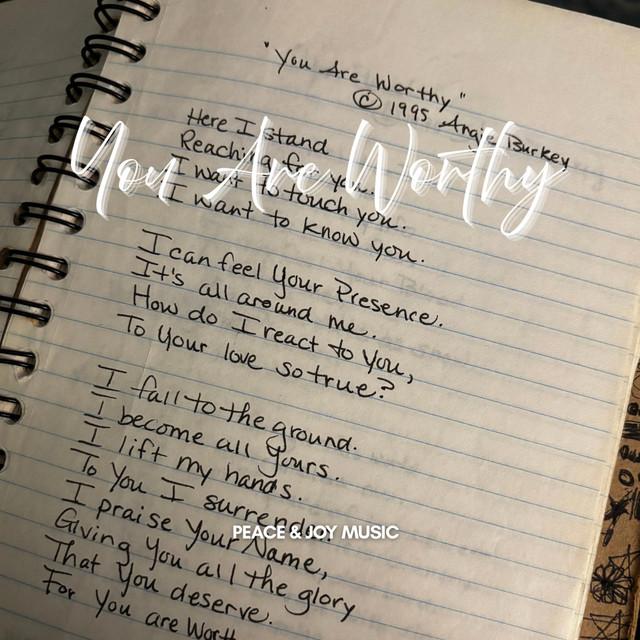 "You Are Worthy"
© 1995 Angie Burkey
You Are Worthy
Here I stand
Reaching for you.
I want to touch you.
I want to know you.
I can feel Your Presence.
It's all around me.
How do I react to You,
To Your love so true?
I fall to the ground.
I become all Yours.
I lift my hands.
To You I surrender
I praise Your Name,
Giving You all the glory
That You deserve.
For You are Worth
PEACE & JOY MUSIC